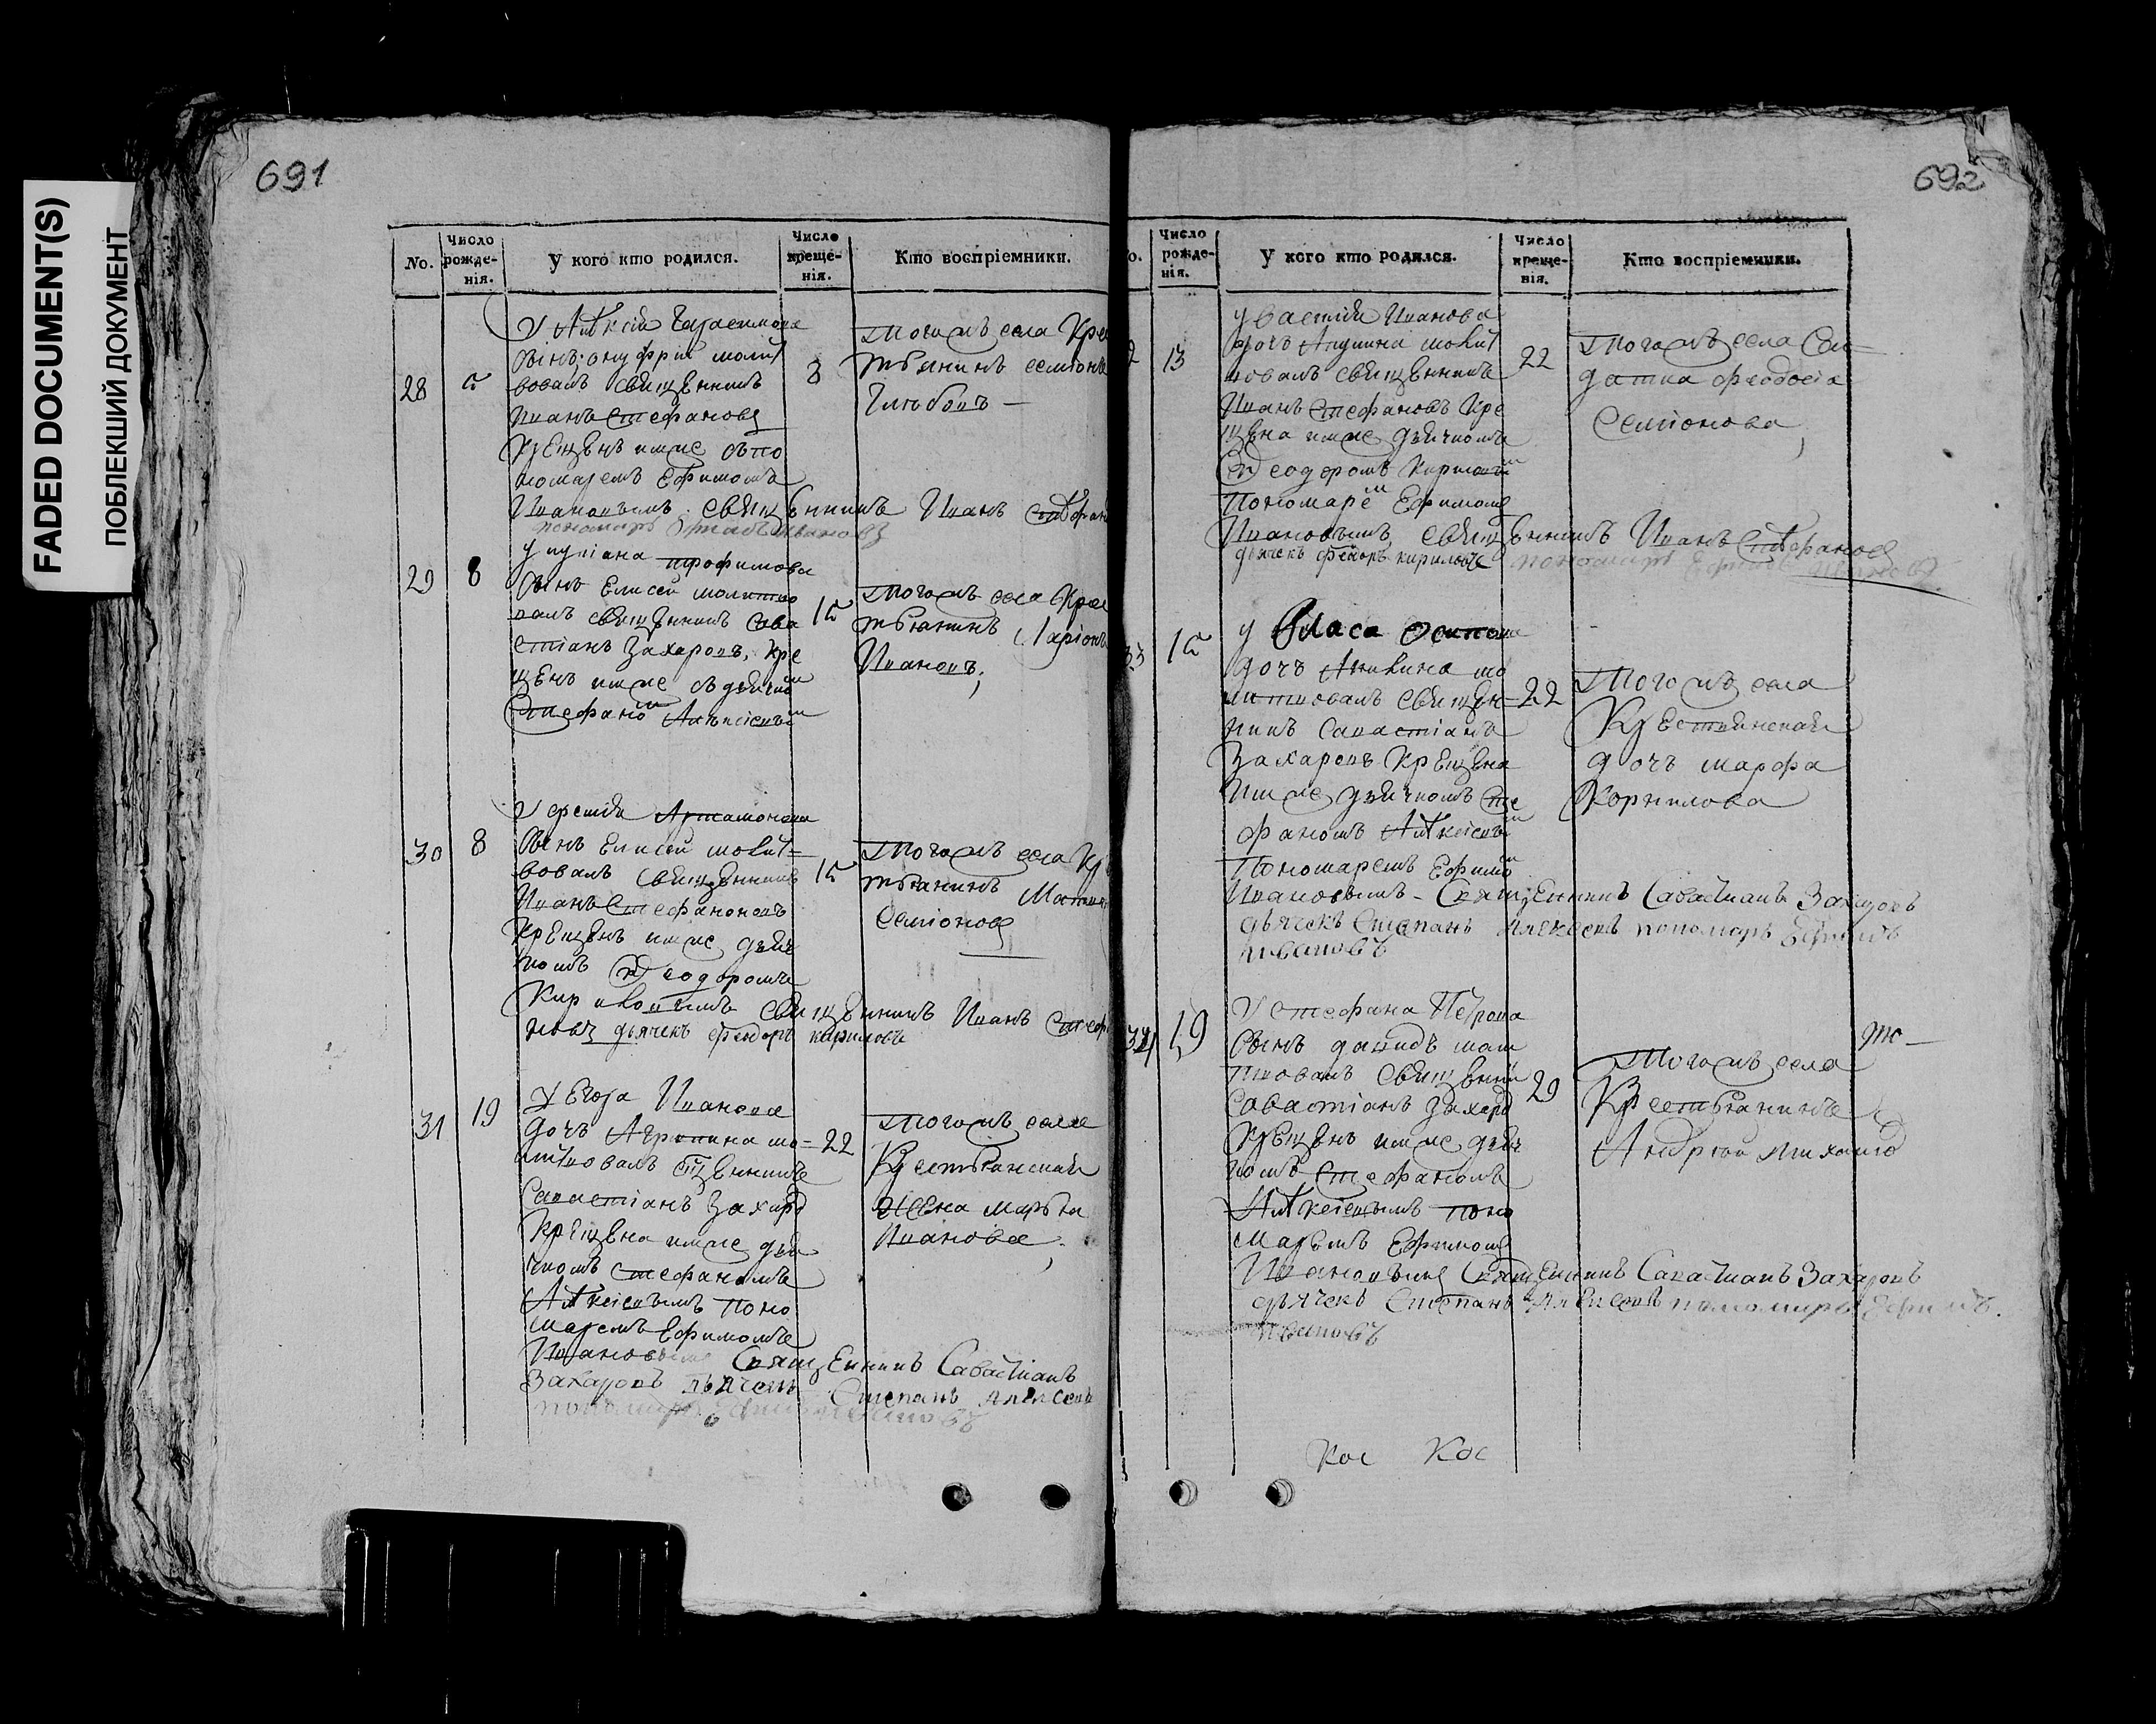 FADED DOCUMENT(S)
ПОБЛЕКШИЙ ДОКУМЕНТ
691
No.
Число рожденія.
У кого кто родился.
Число крещенія.
Кто воспріемники.
У Алѣксія Герасимова
сынъ онуфрій молит
28
8
вовалъ священникъ
Иванъ Стефановъ
Крещенъ имже съ по
номаремъ Ефимомъ
Ивановымъ священникъ Иванъ Стефан
тогожъ села Кре
тьянинъ семіонъ
Глѣбовъ
29
8
трофимова
сынъ Елисей молитво
валъ священникъ Сава
стіанъ Захаровъ, кре
щенъ имже съ дьячком
Стефаном Алѣксіевым
15
тогожъ села Крес
тьянинъ Ларіонъ
Ивановъ
30
8
Артамонова
сынъ Елисей молит=
вовалъ священникъ
Иванъ Стефановъ
Крещенъ имже дьяч
комъ Ѳеодоромъ
Кириловымъ священникъ Иванъ Стеф
новъ дьячекъ феодоръ кириловъ
15
тогожъ села Кр
тьянинъ
Семіоновъ
31
19
У Егора Иванова
дочъ Агрипина мо=
литвовалъ сщенникъ
Савастіанъ Захаро
Крещена имже дья
чкомъ стефаномъ
Алѣксіевымъ поно
маремъ Ефимомъ
Ивановымъ Священникъ Савастианъ
Захаровъ дьячекъ Степанъ Алексеевъ
22
тогожъ села
Крестьянская
жена марья
Иванова
692
No.
Число рожденія.
У кого кто родился.
Число крещенія.
Кто воспріемники.
Иванова
13
дочъ Акулина молит
вовалъ священникъ
Иванъ Стефановъ Кре
щена имже дьячкомъ
Ѳеодоромъ
Пономарем Ефимомъ
Ивановымъ, священникъ Иванъ Стефановъ
дьячекъ Феѡдоръ кириловъ пономарь Ефимъ Ивановъ
22
тогожъ села Сол=
датка феодосіа
Семіонова
33
15
у Власа Осипова
дочъ Акилина мо
литвовалъ священ=
никъ Савастіанъ
Захаровъ Крещена
имже дьячкомъ Сте
фаномъ Алѣксіевым
Пономаремъ Ефимом
Ивановымъ - Священникъ Савастианъ Захаровъ
дьячекъ Степанъ Алексеевъ пономарь Ефимъ
ивановъ
22
тогожъ села
Крестьянская
дочъ марфа
Корнилова
34
19
У стефана Петрова
сынъ давидъ моли
твовалъ священни
Савастіанъ Захаро
Крещенъ имже дьяч
комъ Стефаномъ
Алѣксіевымъ поно
маремъ Ефимомъ
Ивановымъ Священникъ Савастианъ Захаровъ
дьячекъ Степанъ Алексеевъ пономарь Ефимъ
ивановъ
29
тогожъ села
Крестьянинъ
Андрей Михаило
Кос Кос